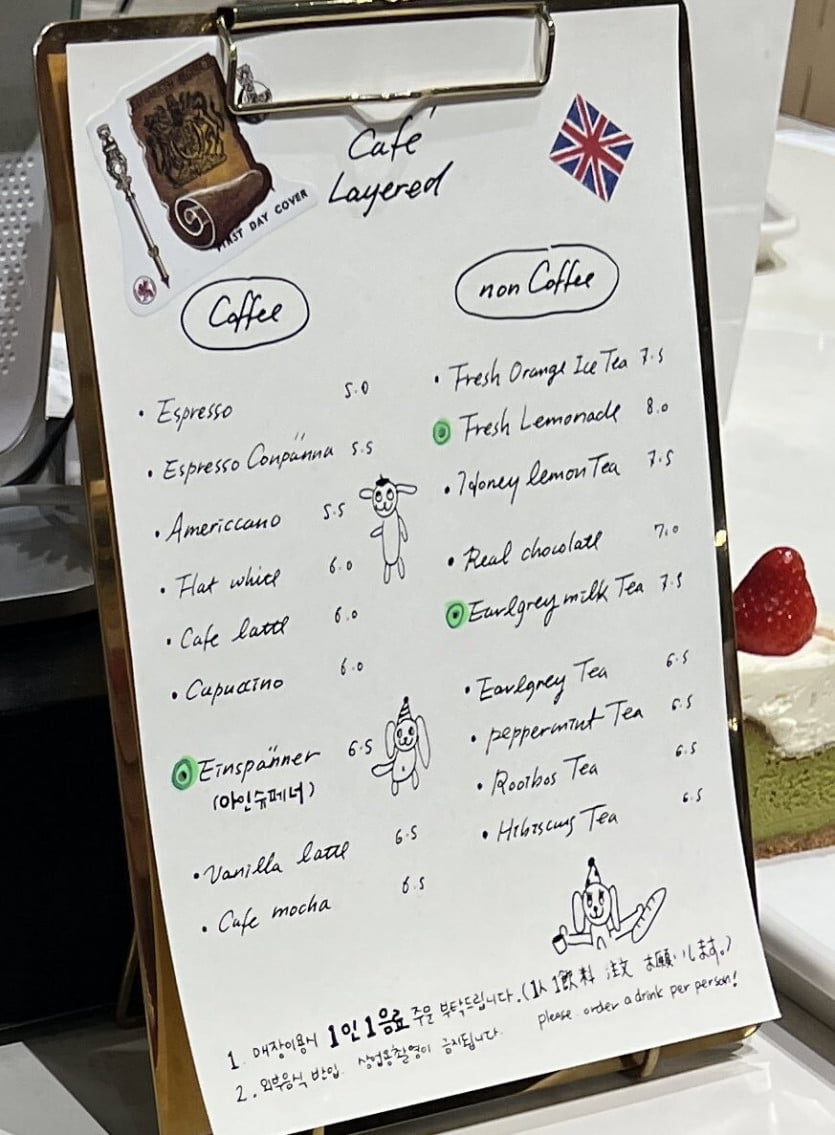 FIRST DAY COVER
Café
Layered
Coffee
• Espresso 5.0
• Espresso Conpänna 5.5
• Americcano 5.5
• Flat white 6.0
• Cafe latte 6.0
• Capuccino 6.0
• Einspänner 6.5
(아인슈페너)
• Vanilla latte 6.5
• Cafe mocha 6.5
non Coffee
• Fresh Orange Ice Tea 7.5
• Fresh Lemonade 8.0
• Honey lemon Tea 7.5
• Real chocolate 7.0
• Earlgrey milk Tea 7.5
• Earlgrey Tea 6.5
• peppermint Tea 6.5
• Rooibos Tea 6.5
• Hibiscus Tea 6.5
1.매장이용시 1인 1음료 주문 부탁드립니다. (1人 1飲料 注文 お願いします。)
please order a drink per person!
2. 외부음식 반입. 상업용촬영이 금지됩니다.